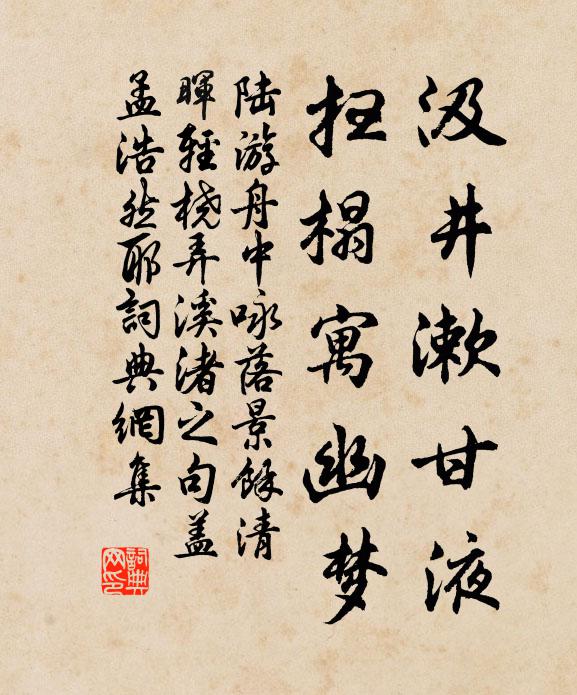 汲井漱甘液
扫榻寓幽梦
陆游舟中咏落景餘清
暉轻桡弄溪渚之句盖
孟浩然耶詞典網集
詞典网印